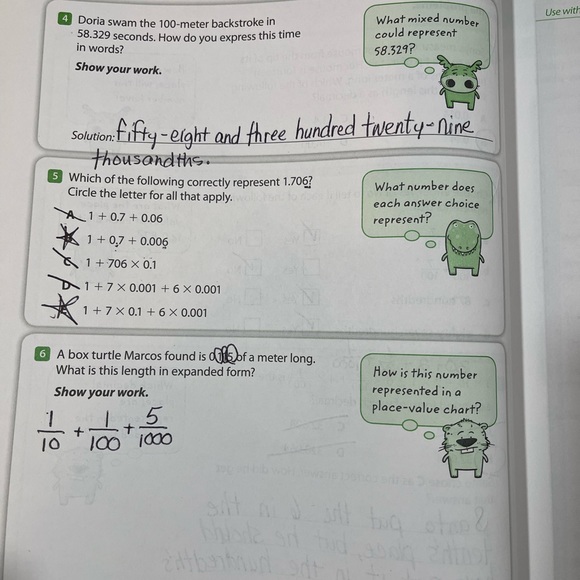 4 Doria swam the 100-meter backstroke in
58.329 seconds. How do you express this time
in words?
Show your work.
What mixed number
could represent
58.329?
Use with
Solution: fifty-eight and three hundred twenty-nine
thousandths.
5 Which of the following correctly represent 1.706?
Circle the letter for all that apply.
A 1 + 0.7 + 0.06
1 + 0.7 + 0.006
C 1 + 706 × 0.1
D 1 + 7 × 0.001 + 6 × 0.001
1 + 7 × 0.1 + 6 × 0.001
What number does
each answer choice
represent?
6 A box turtle Marcos found is 0.115 of a meter long.
What is this length in expanded form?
Show your work.
1/10 + 1/100 + 5/1000
How is this number
represented in a
place-value chart?